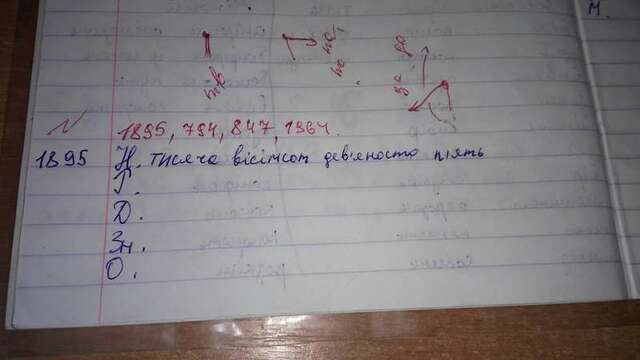 М.
по
по
за
до
1895, 794, 847, 1964.
1895 Н. тисяча вісімсот дев'яносто п'ять
Р.
Д.
Зн.
О.